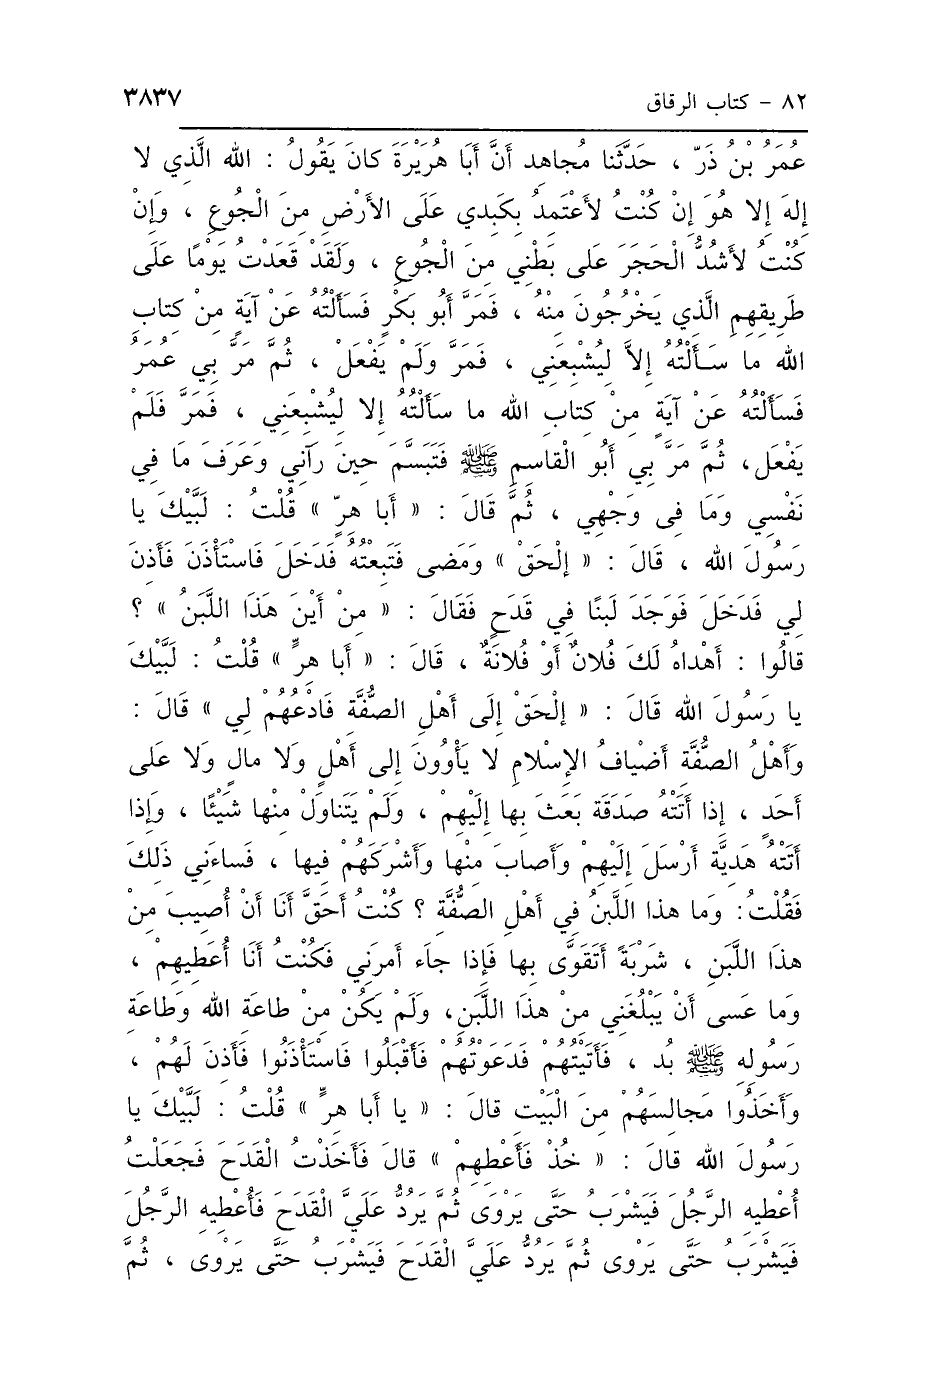 ٨٢ - كتاب الرقاق ٣٨٣٧
عُمَرُ بْنُ ذَرّ ، حَدَّثَنا مُجاهِد أَنَّ أَبَا هُرَيْرَةَ كانَ يَقُولُ : الله الَّذِي لا
إِلهَ إِلا هُوَ إِنْ كُنْتُ لأَعْتَمِدُ بِكَبِدي عَلَى الأَرْضِ مِنَ الْجُوعِ ، وَإِنْ
كُنْتُ لأَشُدُّ الْحَجَرَ عَلى بَطْنِي مِنَ الْجُوعِ ، وَلَقَدْ قَعَدْتُ يَوْمًا عَلَى
طَرِيقِهِمِ الَّذِي يَخْرُجُونَ مِنْهُ ، فَمَرَّ أَبُو بَكْرٍ فَسَأَلْتُهُ عَنْ آيَةٍ مِنْ كِتابِ
الله ما سَأَلْتُهُ إِلاَّ لِيُشْبِعَنِي ، فَمَرَّ وَلَمْ يَفْعَلْ ، ثُمَّ مَرَّ بِي عُمَرُ
فَسَأَلْتُهُ عَنْ آيَةٍ مِنْ كِتابِ الله ما سَأَلْتُهُ إِلا لِيُشْبِعَنِي ، فَمَرَّ فَلَمْ
يَفْعَل، ثُمَّ مَرَّ بِي أَبُو الْقاسِمِ ﷺ فَتَبَسَّمَ حِينَ رَآنِي وَعَرَفَ مَا فِي
نَفْسِي وَمَا فِى وَجْهِي ، ثُمَّ قَالَ : « أَبا هِرٍّ » قُلْتُ : لَبَّيْكَ يا
رَسُولَ الله ، قَالَ : « إِلْحَقْ » وَمَضى فَتَبِعْتُهُ فَدَخَلَ فَاسْتَأْذَنَ فَأَذِنَ
لِي فَدَخَلَ فَوَجَدَ لَبَنًا فِي قَدَحٍ فَقَالَ : « مِنْ أَيْنَ هَذَا اللَّبَنُ » ؟
قالُوا : أَهْداهُ لَكَ فُلانٌ أَوْ فُلانَةٌ ، قَالَ : « أَبا هِرٍّ » قُلْتُ : لَبَّيْكَ
يا رَسُولَ الله قَالَ : « إِلْحَقْ إِلَى أَهْلِ الصُّفَّة فَادْعُهُمْ لِي » قَالَ :
وَأَهْلُ الصُّفَّة أَضْيافُ الإِسْلامِ لا يَأْوُونَ إِلى أَهْلٍ وَلا مالٍ وَلا عَلى
أَحَدٍ ، إِذا أَتَتْهُ صَدَقَة بَعَثَ بِها إِلَيْهِمْ ، وَلَمْ يَتَناوَلْ مِنْها شَيْئًا ، وَإِذا
أَتَتْهُ هَدِيَّة أَرْسَلَ إِلَيْهِمْ وَأَصابَ مِنْها وَأَشْرَكَهُمْ فِيها ، فَساءَنِي ذَلِكَ
فَقُلْتُ: وَما هذا اللَّبَنُ فِي أَهْلِ الصُّفَّة ؟ كُنْتُ أَحَقَّ أَنَا أَنْ أُصِيبَ مِنْ
هذَا اللَّبَنِ ، شَرْبَةً أَتَقَوَّى بِها فَإِذا جاءَ أَمرَنِي فَكُنْتُ أَنَا أُعْطِيهِمْ ،
وَما عَسى أَنْ يَبْلُغَنِي مِنْ هذَا اللَّبَنِ، وَلَمْ يَكُنْ مِنْ طاعَةِ الله وَطاعَةِ
رَسُولِهِ ﷺ بُد ، فَأَتَيْتُهُمْ فَدَعَوْتُهُمْ فَأَقْبَلُوا فَاسْتَأْذَنُوا فَأَذِنَ لَهُمْ ،
وَأَخَذُوا مَجالِسَهُمْ مِنَ الْبَيْتِ قالَ : « يا أَبا هِرٍّ » قُلْتُ : لَبَّيْكَ يا
رَسُولَ الله قالَ : « خُذْ فَأَعْطِهِمْ » قالَ فَأَخَذْتُ الْقَدَحَ فَجَعَلْتُ
أُعْطِيهِ الرَّجُلَ فَيَشْرَبُ حَتَّى يَرْوَى ثُمَّ يَرُدُّ عَلَيَّ الْقَدَحَ فَأُعْطِيهِ الرَّجُلَ
فَيَشْرَبُ حَتَّى يَرْوى ثُمَّ يَرُدُّ عَلَيَّ الْقَدَحَ فَيَشْرَبُ حَتَّى يَرْوى ، ثُمَّ